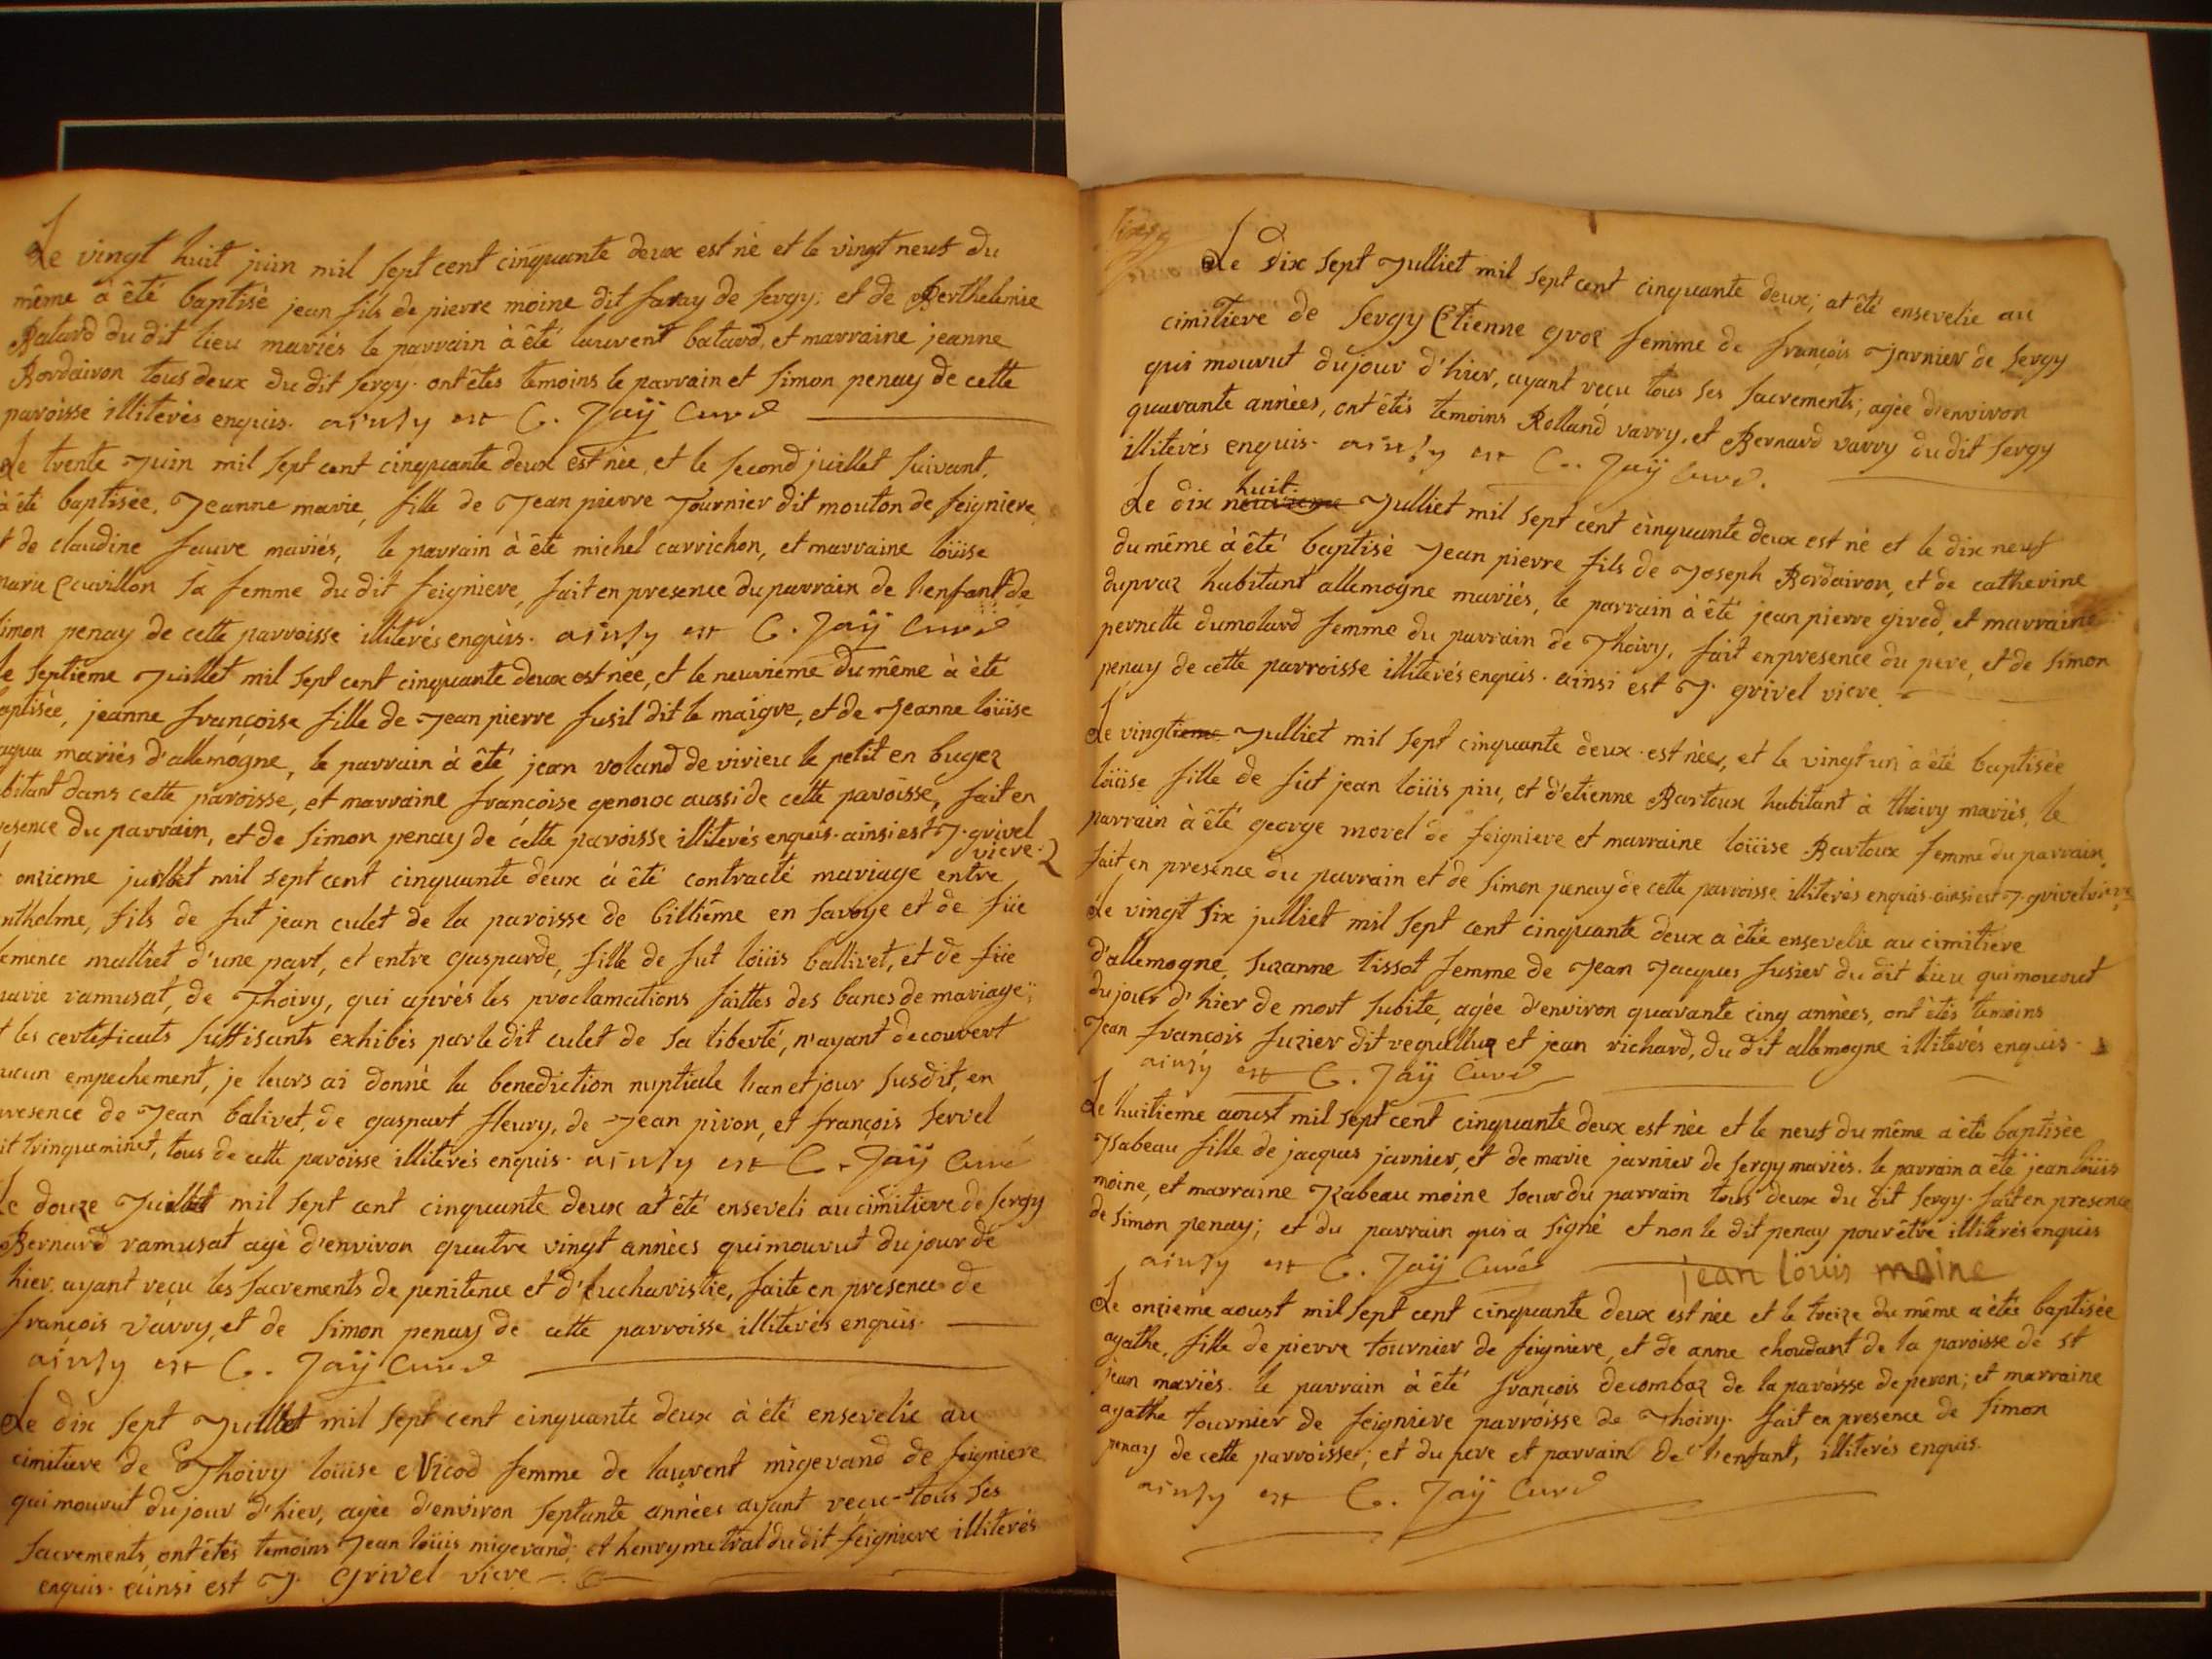 Le vingt huit juin mil sept cent cinquante deux est né et le vingt neuf du
même à été baptisé jean fils de pierre moine dit faray de sergy; et de Berthelemie
Batard du dit lieu mariés le parrain à été laurent batard, et marraine jeanne
Bordairon tous deux du dit sergy. ont étes temoins le parrain et simon penay de cette
paroisse illiterés enquis. ainsy est C. Jaÿ Curé
Le trente Juin mil sept cent cinquante deux est née, et le second juillet suivant,
à été baptisée, Jeanne marie, fille de Jean pierre Tournier dit mouton de feigniere,
de claudine fauvre mariés, le parrain à été michel carrichon, et marraine loüise
marie Couvillon sa femme du dit feigniere, fait en presence du parrain de l'enfant de
simon penay de cette parroisse illiterés enquis. ainsy est C. Jaÿ Curé
le septieme Juillet mil sept cent cinquante deux est née, et le neuvieme du même à été
baptisée, jeanne françoise fille de Jean pierre fusil dit le maigre, et de Jeanne loüise
mariés d'allemogne, le parrain à été jean voland de virieu le petit en bugez
bitant dans cette paroisse, et marraine françoise genoux aussi de cette paroisse, fait en
resence du parrain, et de simon penay de cette paroisse illiterés enquis. ainsi est J. grivel
vicre.
onzieme juillet mil sept cent cinquante deux à été contracté mariage entre
nthelme, fils de fut jean culet de la paroisse de billiême en savoye et de füe
lemence malliet d'une part, et entre gasparde, fille de fut loüis ballivet, et de füe
marie ramusat, de Thoiry, qui aprés les proclamations faittes des bancs de mariage;
t les certificats suffisants exhibés par le dit culet de sa liberté, n'ayant decouvert
ucun empechement, je leurs ai donné la benediction nuptiale l'an et jour susdit, en
presence de Jean balivet, de gaspart fleury, de Jean piron, et françois servel
it trinqueminet, tous de cette paroisse illiterés enquis. ainsy est C. Jaÿ Curé
Le douze Juillet mil sept cent cinquante deux at été enseveli au cimitiere de sergy
Bernard ramusat agé d'environ quatre vingt années qui mourut du jour de
hier, ayant reçu les sacrements de penitence et d'Eucharistie, faite en presence de
françois varry, et de simon penay de cette parroisse illiterés enquis.
ainsy est C. Jaÿ Curé
Le dix sept Juillet mil sept cent cinquante deux à été ensevelie au
cimitiere de Thoiry loüise Nicod femme de laurent migerand de feigniere
qui mourut du jour d'hier, agée d'environ septante années ayant reçu tous ses
sacrements, ont étés temoins Jean loüis migerand, et henry metral du dit feigniere illiterés
enquis. ainsi est J. Grivel vicre
Le dix sept Julliet mil sept cent cinquante deux; at été ensevelie au
cimitiere de sergy Etienne groz femme de françois Jarnier de sergy
qui mourut du jour d'hier, ayant reçu tous ses sacrements; agée d'environ
quarante années, ont étés temoins Rolland varry, et Bernard varry du dit sergy
illiterés enquis. ainsy est C. Jaÿ Curé.
huit
Le dix neuvieme Julliet mil sept cent cinquante deux est né et le dix neuf
du même à été baptisé Jean pierre fils de Joseph Bordairon, et de catherine
dupraz habitant allemogne mariés, le parrain à été jean pierre girod, et marraine
pernette dumolard femme du parrain de Thoiry, fait en presence du pere, et de simon
penay de cette parroisse illiterés enquis. ainsi est J. grivel vicre.
Le vingtieme Julliet mil sept cinquante deux est née, et le vingt un à été baptisée
loüise fille de fut jean loüis piu, et d'etienne Bartoux habitant à thoiry mariés, le
parrain à été george morel de feigniere et marraine loüise Bartoux femme du parrain,
fait en presence du parrain et de simon penay de cette parroisse illiterés enquis. ainsi est J. grivel vicre
Le vingt six julliet mil sept cent cinquante deux a étée ensevelie au cimitiere
d'allemogne, suzanne tissot femme de Jean Jacques fusier du dit lieu qui mourut
du jour d'hier de mort subite, agée d'environ quarante cinq années, ont étés temoins
Jean françois fuzier dit requellux et jean richard, du dit allemogne illiterés enquis.
ainsy est C. Jaÿ Curé
Le huitieme aoust mil sept cent cinquante deux est née et le neuf du même a été baptisée
Isabeau fille de jacques jarnier, et de marie jarnier de sergy mariés. le parrain a été jean loüis
moine, et marraine Izabeau moine soeur du parrain tous deux du dit sergy. fait en presence
de simon penay; et du parrain qui a signé et non le dit penay pour être illiterés enquis
ainsy est C. Jaÿ Curé
jean louis moine
Le onzieme aoust mil sept cent cinquante deux est née et le treize du même a étée baptisée
agathe, fille de pierre tournier de feigniere, et de anne choudant de la paroisse de st
jean mariés. le parrain à été françois decombaz de la paroisse de peron; et marraine
agathe tournier de feigniere parroisse de Thoiry. fait en presence de simon
penay de cette parroisse; et du pere et parrain de l'enfant, illiterés enquis.
ainsy est C. Jaÿ Curé